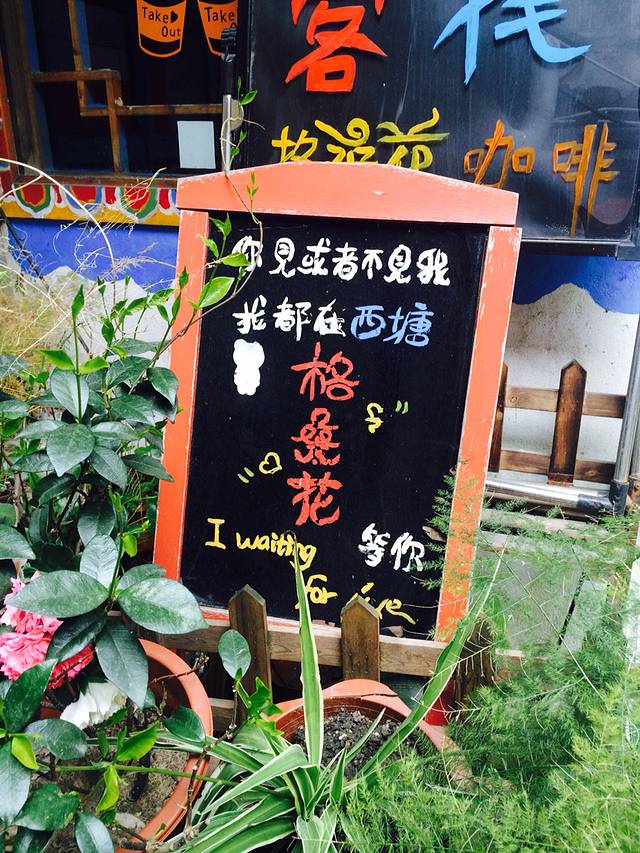 Take Out
Take Out
客栈
格桑花 咖啡
你见或者不见我
我都在西塘
格桑花
I waiting 等你
for